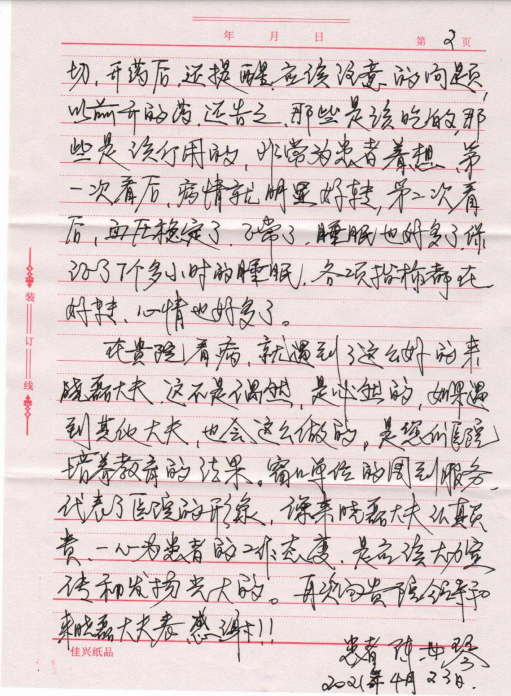 年 月 日 第 2 页
切，开药后，还提醒应该注意的问题，
以前开的药，还告之，那些是该吃的，那
些是该停用的，非常为患者着想，第
一次看后，病情就明显好转，第二次看
后，血压稳定了，正常了，睡眠也好多了，保
证了7个多小时的睡眠，各项指标都在
好转，心情也好多了。
在贵院看病，就遇到了这么好的来
晓磊大夫，这不是偶然，是必然的，如果遇
到其他大夫，也会这么做的，是你们医院
培养教育的结果。窗口单位的周到服务，
代表了医院的形象，像来晓磊大夫认真负
责，一心为患者的工作态度，是应该大力宣
传和发扬光大的。再次向贵院领导和
来晓磊大夫表感谢！！
患者 陈 琴
2021年4月23日.
装订线
佳兴纸品